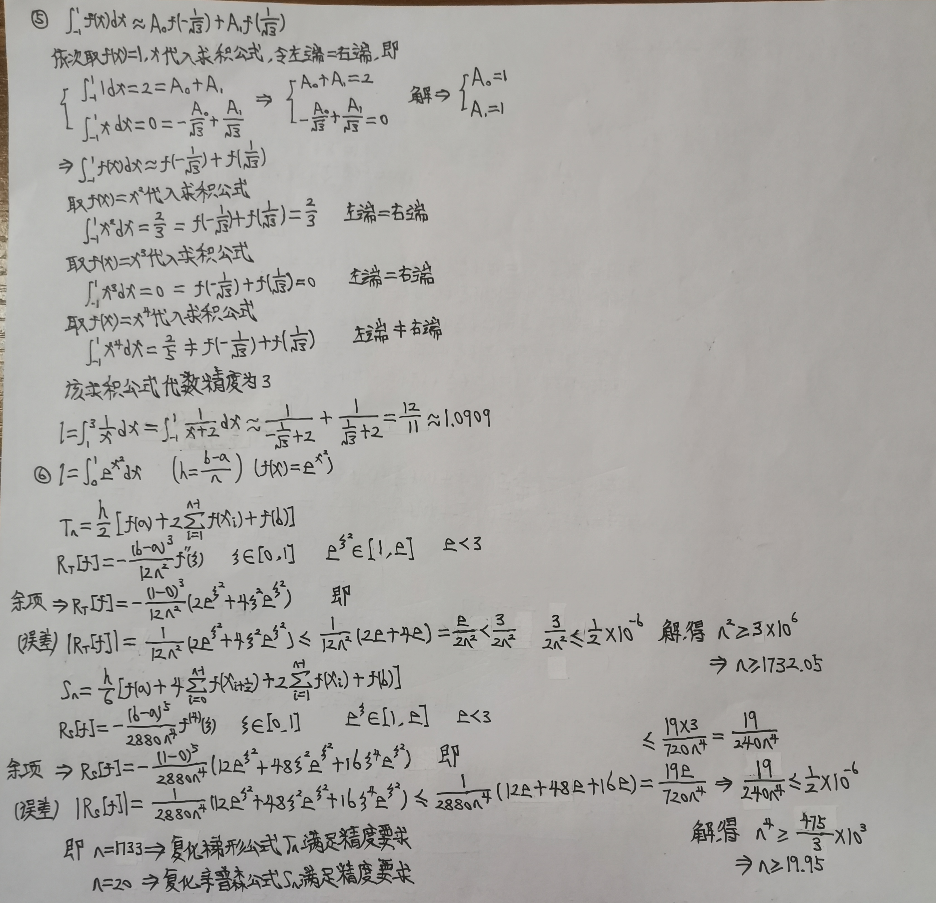 ⑤ ∫₋₁¹ f(x)dx ≈ A₀f(-1/√3) + A₁f(1/√3)
依次取f(x)=1, x代入求积公式,令左端=右端,即
{ ∫₋₁¹ 1dx = 2 = A₀+A₁ ⇒ { A₀+A₁=2 解⇒ { A₀=1
∫₋₁¹ xdx = 0 = -A₀/√3 + A₁/√3 -A₀/√3 + A₁/√3 = 0 A₁=1
⇒ ∫₋₁¹ f(x)dx ≈ f(-1/√3) + f(1/√3)
取f(x)=x²代入求积公式
∫₋₁¹ x²dx = 2/3 = f(-1/√3)+f(1/√3) = 2/3 左端=右端
取f(x)=x³代入求积公式
∫₋₁¹ x³dx = 0 = f(-1/√3)+f(1/√3)=0 左端=右端
取f(x)=x⁴代入求积公式
∫₋₁¹ x⁴dx = 2/5 ≠ f(-1/√3)+f(1/√3) 左端≠右端
该求积公式代数精度为3
I=∫₁³ 1/x dx = ∫₋₁¹ 1/(x+2) dx ≈ 1/(-1/√3+2) + 1/(1/√3+2) = 12/11 ≈ 1.0909
⑥ I=∫₀¹ e^(x²)dx (h=(b-a)/n) (f(x)=e^(x²))
Tₙ = h/2 [f(a)+2∑_(i=1)^(n-1) f(xᵢ)+f(b)]
R_T[f] = -(b-a)³/(12n²) f''(ξ) ξ∈[0,1] e^(ξ²)∈[1,e] e<3
余项 ⇒ R_T[f] = -(1-0)³/(12n²) (2e^(ξ²)+4ξ²e^(ξ²)) 即
(误差) |R_T[f]| = 1/(12n²) (2e^(ξ²)+4ξ²e^(ξ²)) ≤ 1/(12n²) (2e+4e) = e/(2n²) < 3/(2n²) 3/(2n²) ≤ 1/2×10⁻⁶ 解得 n²≥3×10⁶
⇒ n≥1732.05
Sₙ = h/6 [f(a)+4∑_(i=0)^(n-1) f(x_(i+1/2))+2∑_(i=1)^(n-1) f(xᵢ)+f(b)]
R_S[f] = -(b-a)⁵/(2880n⁴) f⁽⁴⁾(ξ) ξ∈[0,1] e^ξ∈[1,e] e<3
≤ 19×3/(720n⁴) = 19/(240n⁴)
余项 ⇒ R_S[f] = -(1-0)⁵/(2880n⁴) (12e^(ξ²)+48ξ²e^(ξ²)+16ξ⁴e^(ξ²)) 即
(误差) |R_S[f]| = 1/(2880n⁴) (12e^(ξ²)+48ξ²e^(ξ²)+16ξ⁴e^(ξ²)) ≤ 1/(2880n⁴) (12e+48e+16e) = 19e/(720n⁴) ⇒ 19/(240n⁴) ≤ 1/2×10⁻⁶
解得 n⁴ ≥ 475/3×10³
⇒ n≥19.95
即 n=1733⇒复化梯形公式Tₙ满足精度要求
n=20 ⇒复化辛普森公式Sₙ满足精度要求